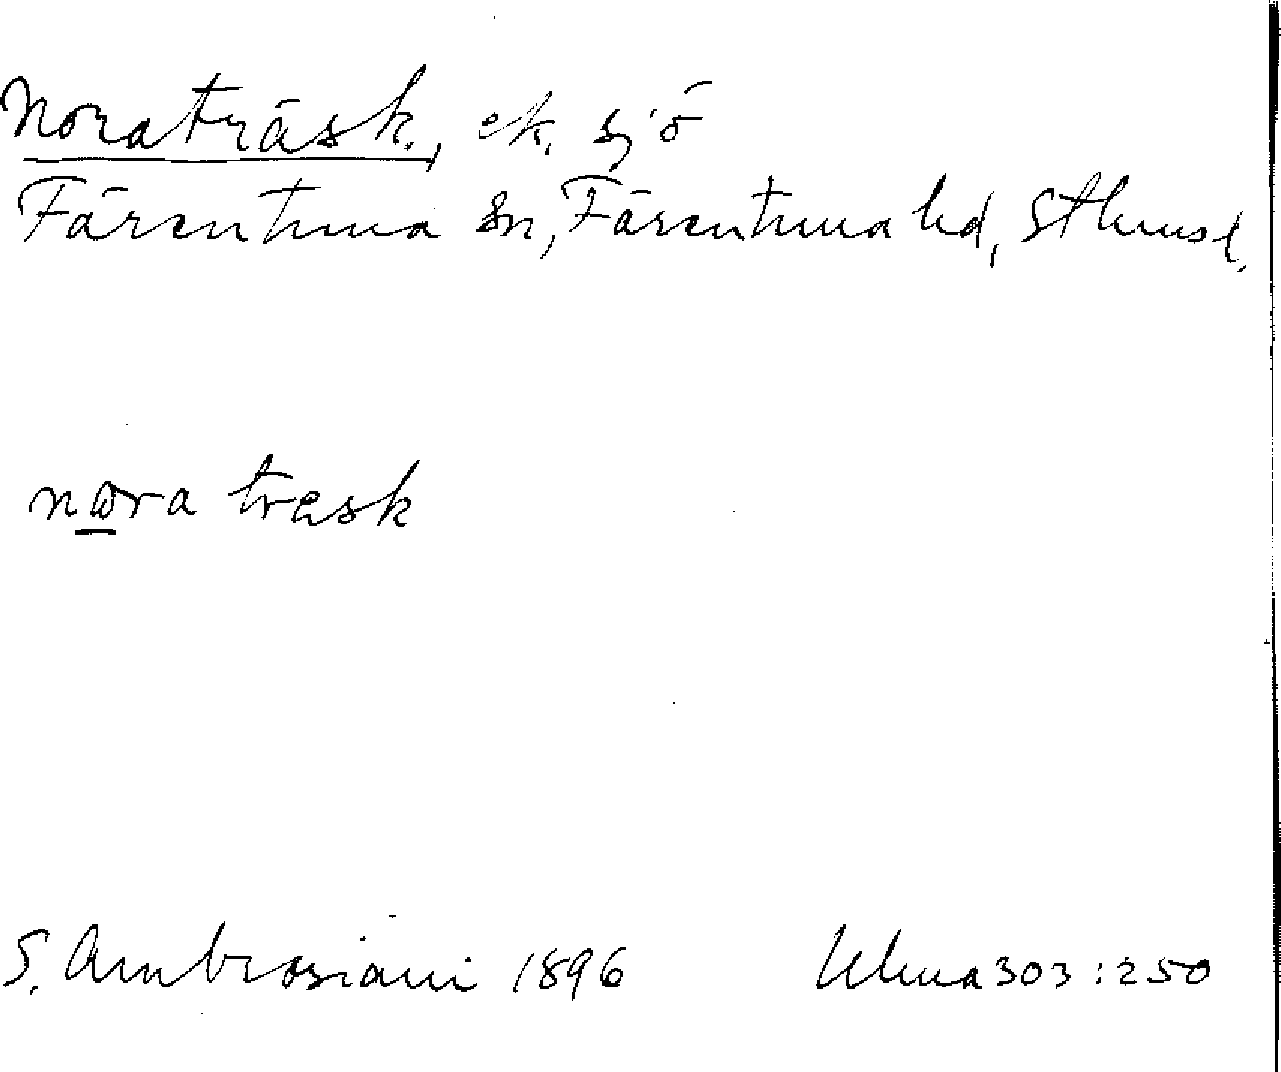 Noraträsk, ek. sjö
Färentuna sn, Färentuna hd, Sthmsl.
nωra tręsk
S. Ambrosiani 1896 Ulma 303:250